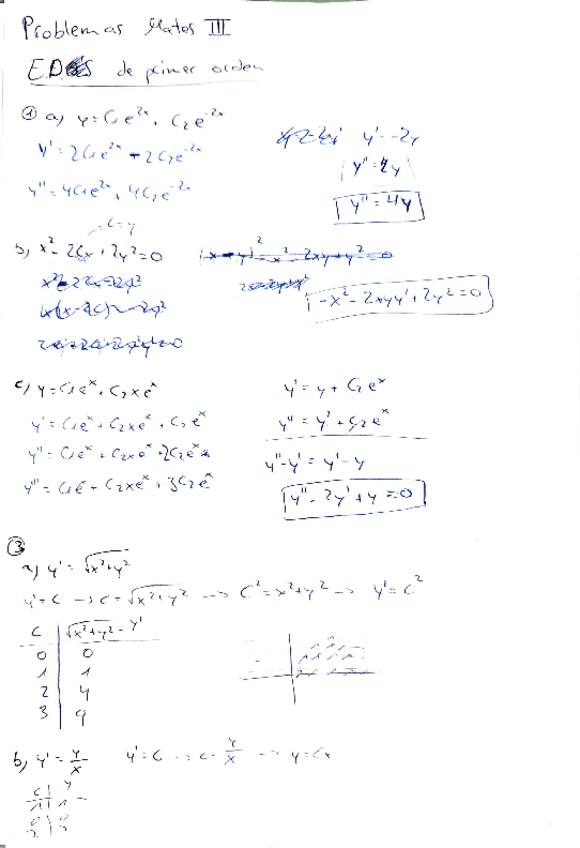 Problemas Mates III
EDOS de primer orden
① a) y = C₁e^{2x} + C₂e^{-2x}
y' = 2C₁e^{2x} + 2C₂e^{-2x}
y' = -2y
y'' = 2y
y'' = 4C₁e^{2x} + 4C₂e^{-2x}
y'' = 4y
b) x² - 2Cx + 2y² = 0
-x² - 2xyy' + 2y² = 0
c) y = C₁e^x + C₂xe^x
y' = y + C₂e^x
y' = C₁e^x + C₂xe^x + C₂e^x
y'' = y' + C₂e^x
y'' = C₁e^x + C₂xe^x + 2C₂e^x
y'' - y' = y' - y
y''' = C₁e + C₂xe^x + 3C₂e^x
y'' - 2y' + y = 0
③
a) y' = √x²+y²
y' = C → C = √x²+y² → C² = x²+y² → y' = C²
C | √x²+y² - y'
0 | 0
1 | 1
2 | 4
3 | 9
b) y' = y/x y' = C → C = y/x → y = Cx
C | y
1 | 1